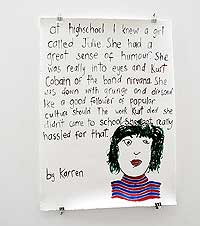 at highschool I knew a girl
called Julie She had a
great sense of humour She
was really into eyes and Kurt
Cobain of the band nirvana She
was down with grunge and dressed
like a good follower of popular
culture should The week Kurt died she
didn't come to school She got really
hassled for that.
by Karren